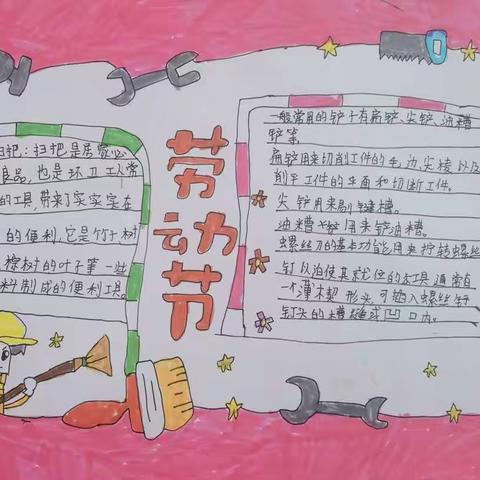 扫把:扫把是居家必
良品,也是环卫工人常
的工具,带来了实实在在
的便利,它是竹子树
棕树的叶子等一些
料制成的便利工具。
劳动节
一般常用的铲子有扁铲、尖铲、油槽
铲等。
扁铲用来切削工件的毛边,尖棱以及
削平工件的平面和切断工件。
尖铲用来剔键槽。
油槽铲用来铲油槽。
螺丝刀的基本功能用来拧转螺丝
钉以迫使其就位的工具通常有
一个薄楔形头,可插入螺丝钉
钉头的槽缝或凹口内。